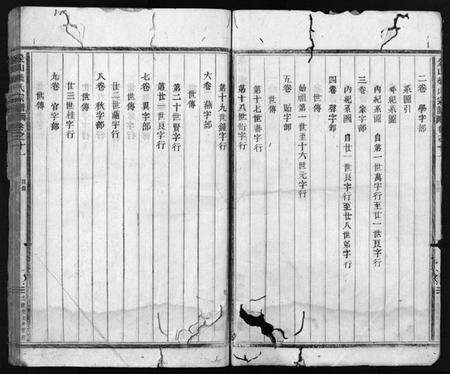 二卷 學字部
系圖引
外紀系圖
三卷 家字部
內紀系圖 自第一世萬字行至廿一世艮字行
四卷 聲字部
內紀系圖 自廿一世艮字行至廿八世弟字行
世傳
五卷 貽字部
始祖第一世至十六世元字行
世傳
第十七世壽字行
第十八世衍字行
第十九世鐘字行
六卷 燕字部
世傳
第二十世賢字行
第廿一世艮字行
七卷 翼字部
世傳
廿二世蘭字行
八卷 秋字部
世傳
廿三世桂字行
九卷 官字部
世傳
氏宗譜
卷之十一
目錄